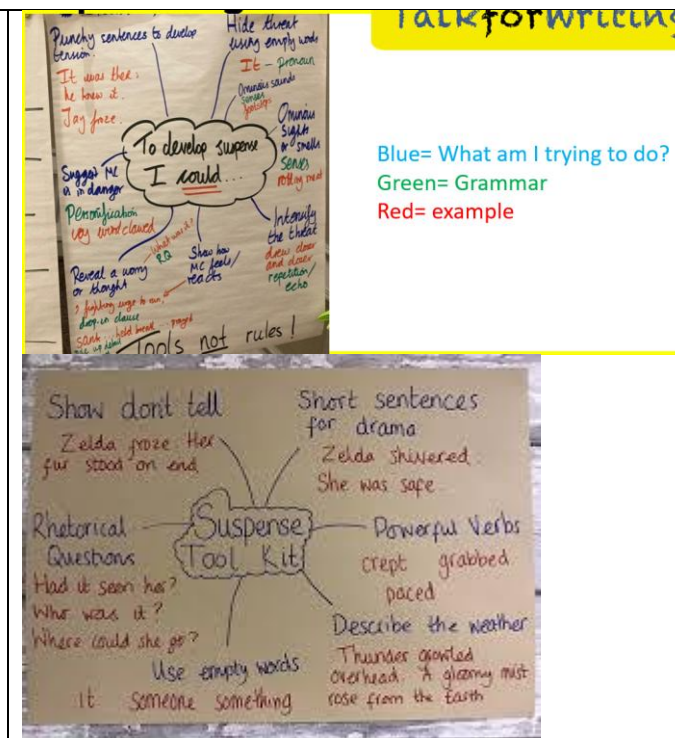 Talkforwriting
Punchy sentences to develop
tension.
It was there.
he knew it.
Jay froze.
Hide threat
using empty words
It - pronoun
Ominous sounds
senses
footsteps
Ominous
sights
or smells
senses
rotting meat
To develop suspense
I could...
Suggest MC
is in danger
Personification
icy wind clawed
Intensify
the threat
drew closer
and closer
repetition/
echo
Show how
MC feels/
reacts
What was it?
RQ
Reveal a worry
or thought
, fighting urge to run,
drop-in clause
sank.. hold breath.. prayed
Tools not rules!
Blue= What am I trying to do?
Green= Grammar
Red= example
Show don't tell
Zelda froze. Her
fur stood on end.
Short sentences
for drama
Zelda shivered.
She was safe.
Rhetorical
Questions
Had it seen her?
Who was it?
Where could she go?
Suspense
Tool Kit
Powerful Verbs
crept grabbed
paced
Describe the weather
Thunder growled
overhead. A gloomy mist
rose from the Earth
Use empty words
it someone something